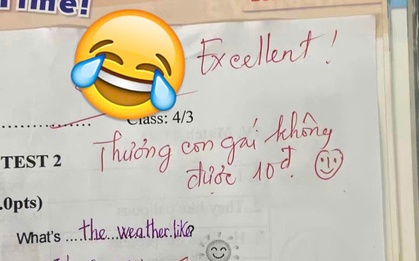 Time!
Excellent!
Class: 4/3
Thưởng con gái không
được 10đ.
TEST 2
.0pts)
What's ....the...wea.ther.like?